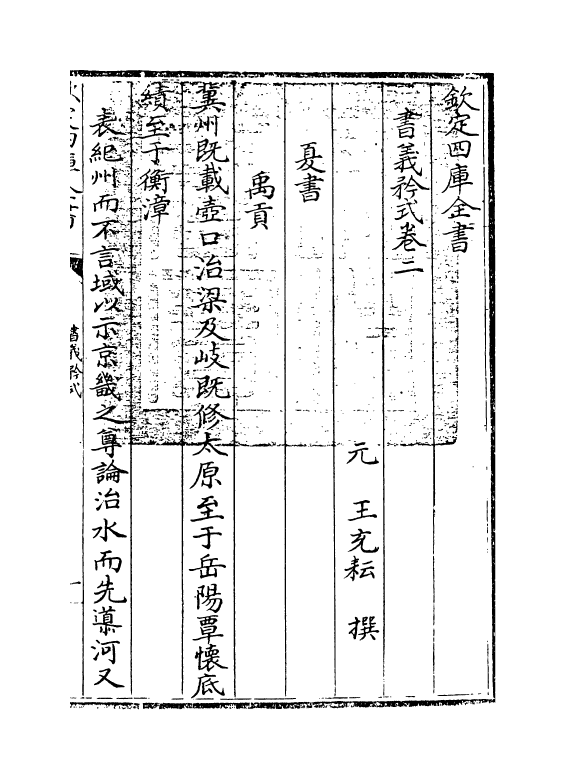 欽定四庫全書
書義矜式卷二
元 王充耘 撰
夏書
禹貢
冀州既載壺口治梁及岐既修太原至于岳陽覃懷底
績至于衡漳
表紀州而不言域以示京畿之尊論治水而先導河又
書義矜式